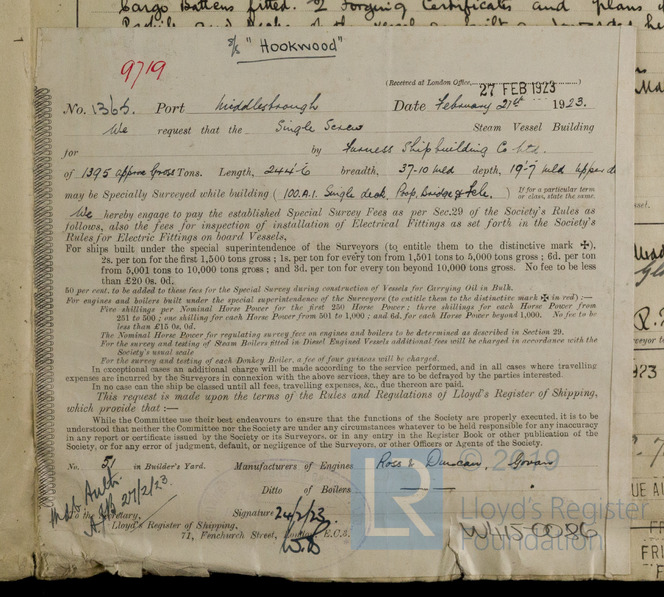 Cargo Battens fitted. 2 Forging Certificates and plans
S/S "Hookwood"
9719
(Received at London Office, 27 FEB 1923)
No. 1365. Port Middlesbrough Date February 21st 1923.
We request that the Single Screw Steam Vessel Building
for by Furness Shipbuilding Co Ltd.
of 1395 approx Gross Tons. Length, 244-6 breadth, 37-10 Mld depth, 19-7 Mld upper d
may be Specially Surveyed while building ( 100.A.1. Single deck, Poop, Bridge & Fcle. ) If for a particular term
or class, state the same.
We hereby engage to pay the established Special Survey Fees as per Sec.29 of the Society's Rules as
follows, also the fees for inspection of installation of Electrical Fittings as set forth in the Society's
Rules for Electric Fittings on board Vessels,
For ships built under the special superintendence of the Surveyors (to entitle them to the distinctive mark ✠).
2s. per ton for the first 1,500 tons gross; 1s. per ton for every ton from 1,501 to 5,000 tons gross; 6d. per ton
from 5,001 tons to 10,000 tons gross; and 3d. per ton for every ton beyond 10,000 tons gross. No fee to be less
than £20 0s. 0d.
50 per cent. to be added to these fees for the Special Survey during construction of Vessels for Carrying Oil in Bulk.
For engines and boilers built under the special superintendence of the Surveyors (to entitle them to the distinctive mark ✠ in red) :—
Five shillings per Nominal Horse Power for the first 250 Horse Power; three shillings for each Horse Power from
251 to 500; one shilling for each Horse Power from 501 to 1,000; and 6d. for each Horse Power beyond 1,000. No fee to be
less than £15 0s. 0d.
The Nominal Horse Power for regulating survey fees on engines and boilers to be determined as described in Section 29.
For the survey and testing of Steam Boilers fitted in Diesel Engined Vessels additional fees will be charged in accordance with the
Society's usual scale
For the survey and testing of each Donkey Boiler, a fee of four guineas will be charged.
In exceptional cases an additional charge will be made according to the service performed, and in all cases where travelling
expenses are incurred by the Surveyors in connection with the above services, they are to be defrayed by the parties interested.
In no case can the ship be classed until all fees, travelling expenses, &c., due thereon are paid.
This request is made upon the terms of the Rules and Regulations of Lloyd's Register of Shipping,
which provide that :—
While the Committee use their best endeavours to ensure that the functions of the Society are properly executed, it is to be
understood that neither the Committee nor the Society are under any circumstances whatever to be held responsible for any inaccuracy
in any report or certificate issued by the Society or its Surveyors, or in any entry in the Register Book or other publication of the
Society, or for any error of judgment, default, or negligence of the Surveyors, or other Officers or Agents of the Society.
No. 51 in Builder's Yard. Manufacturers of Engines Ross & Duncan, Govan
Ditto of Boilers
27/2/23.
Signature 24/2/23.
To the Secretary,
Lloyd's Register of Shipping,
71, Fenchurch Street, London E.C.3.
W145-0086
LR
© 2019
Lloyd's Register
Foundation